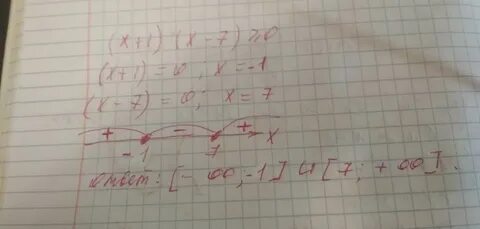 (x+1) (x-7) ≥0
(x+1) = 0 ; x = -1
(x-7) = 0; x = 7
+ - + x
-1 7
ответ: [- ∞; -1] ∪ [7; + ∞].